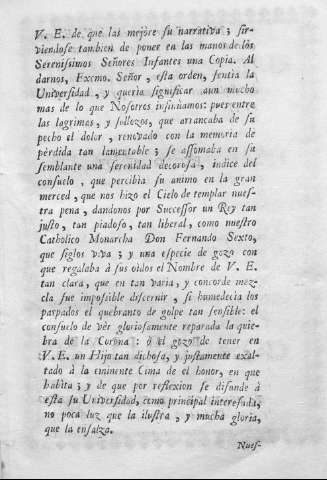 V. E. de que las mejore su narrativa; sir-
viendose tambien de poner en las manos de los
Serenissimos Señores Infantes una Copia. Al
darnos, Excmo. Señor, esta orden, sentia la
Universidad, y queria significar aun mucho
mas de lo que Nosotros insinuamos: pues entre
las lagrimas, y sollozos, que arrancaba de su
pecho el dolor, renovado con la memoria de
pèrdida tan lamentable; se assomaba en su
semblante una serenidad decorosa, indice del
consuelo, que percibia su animo en la gran
merced, que nos hizo el Cielo de templar nues-
tra pena, dandonos por Successor un Rey tan
justo, tan piadoso, tan liberal, como nuestro
Catholico Monarcha Don Fernando Sexto,
que siglos viva; y una especie de gozo con
que regalaba à sus oìdos el Nombre de V. E.
tan clara, que en tan varia, y concorde mez-
cla fue impossible discernir, si humedecia los
parpados el quebranto de golpe tan sensible: el
consuelo de vèr gloriosamente reparada la quie-
bra de la Corona: ò el gozo de tener en
V. E. un Hijo tan dichoso, y justamente exal-
tado à la eminente Cima de el honor, en que
habita; y de que por reflexion se difunde à
esta su Universidad, como principal interesada,
no poca luz que la ilustra, y mucha gloria,
que la ensalza.
Nues-